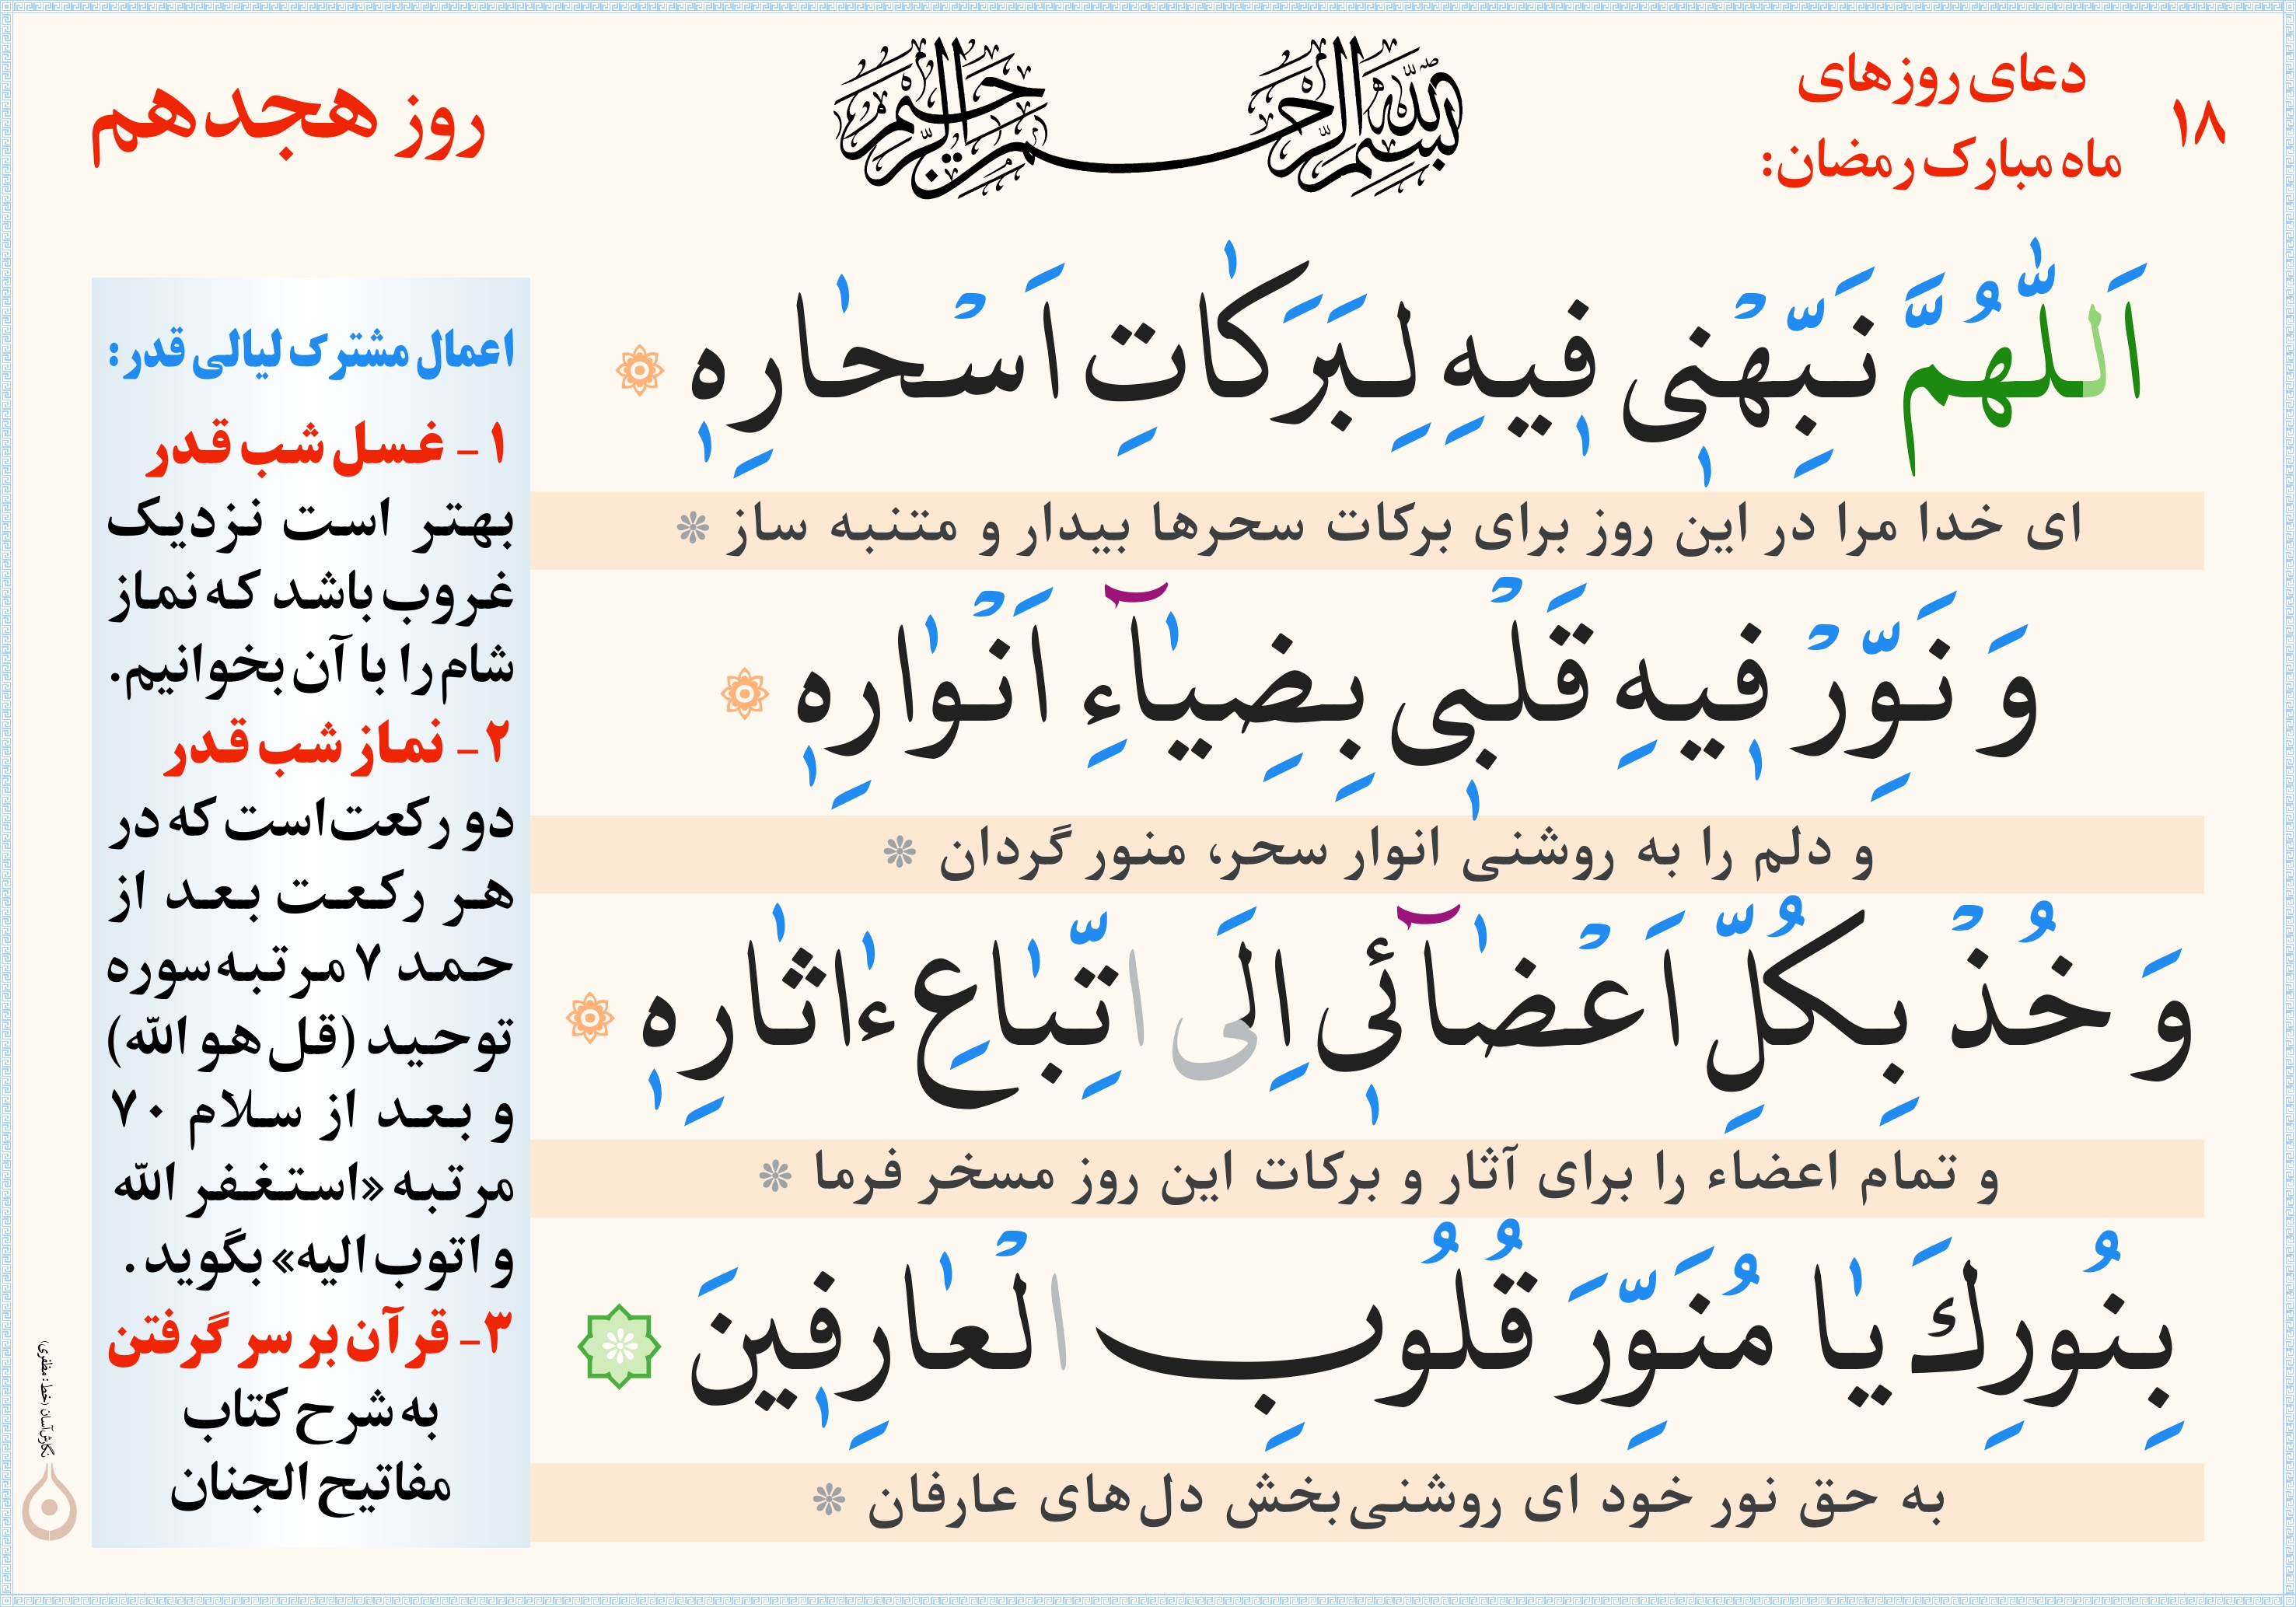 ۱۸
دعای روزهای
ماه مبارک رمضان:
بسم الله الرحمن الرحیم
روز هجدهم
اَللّٰهُمَّ نَبِّهْنٖی فٖیهِ لِبَرَکَاتِ اَسْحٰارِهٖ
ای خدا مرا در این روز برای برکات سحرها بیدار و متنبه ساز
وَ نَوِّرْ فٖیهِ قَلْبٖی بِضِیٰآءِ اَنْوٰارِهٖ
و دلم را به روشنی انوار سحر، منور گردان
وَ خُذْ بِکُلِّ اَعْضٰآئٖی اِلَی اتِّبٰاعِ ءٰاثٰارِهٖ
و تمام اعضاء را برای آثار و برکات این روز مسخر فرما
بِنُورِكَ یٰا مُنَوِّرَ قُلُوبِ الْعٰارِفٖینَ
به حق نور خود ای روشنی‌بخش دل‌های عارفان
اعمال مشترک لیالی قدر:
۱- غسل شب قدر
بهتر است نزدیک
غروب باشد که نماز
شام را با آن بخوانیم.
۲- نماز شب قدر
دو رکعت است که در
هر رکعت بعد از
حمد ۷ مرتبه سوره
توحید (قل هو الله)
و بعد از سلام ۷۰
مرتبه «استغفر الله
و اتوب الیه» بگوید.
۳- قرآن بر سر گرفتن
به شرح کتاب
مفاتیح الجنان
نگارش آسان (خط: مظفری)